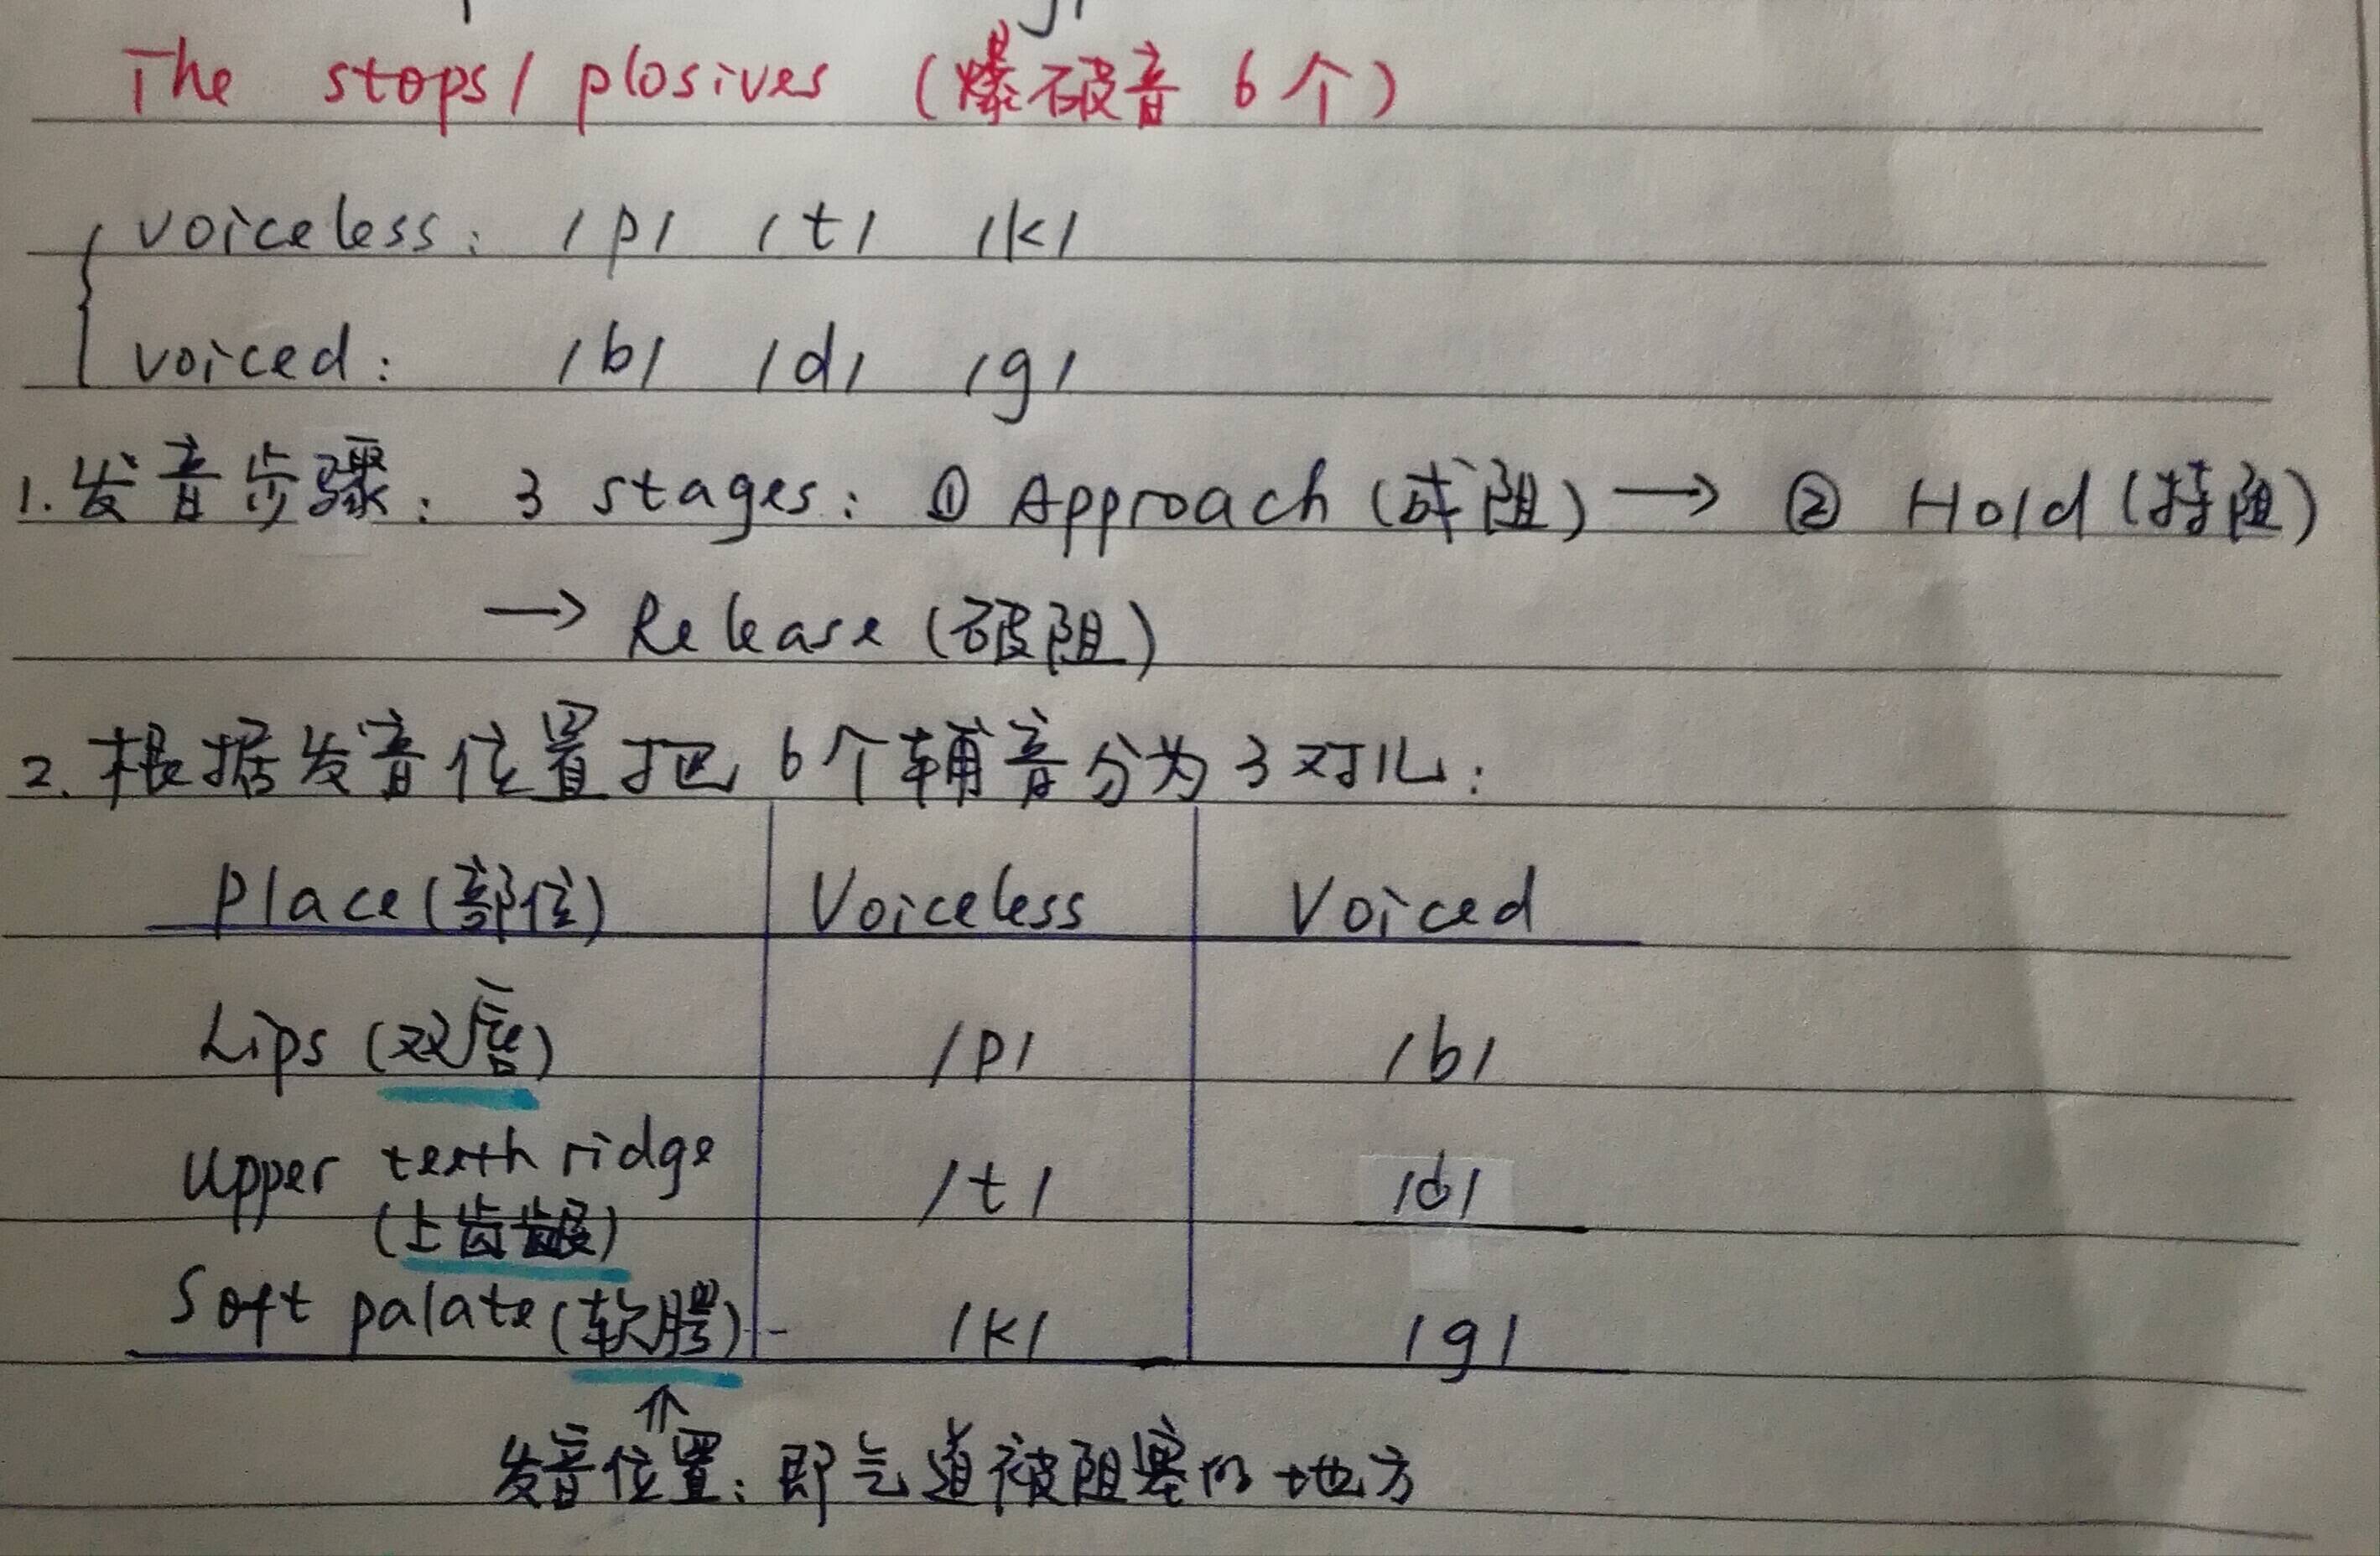 The stops/ plosives (爆破音 6个)
voiceless: /p/ /t/ /k/
voiced: /b/ /d/ /g/
1. 发音步骤: 3 stages: ① Approach (成阻) → ② Hold (持阻)
→ Release (破阻)
2. 根据发音位置把 6个辅音分为3对儿:
Place (部位) Voiceless Voiced
Lips (双唇) /p/ /b/
Upper teeth ridge /t/ /d/
(上齿龈)
Soft palate (软腭) /k/ /g/
⇑
发音位置: 即气道被阻塞的地方